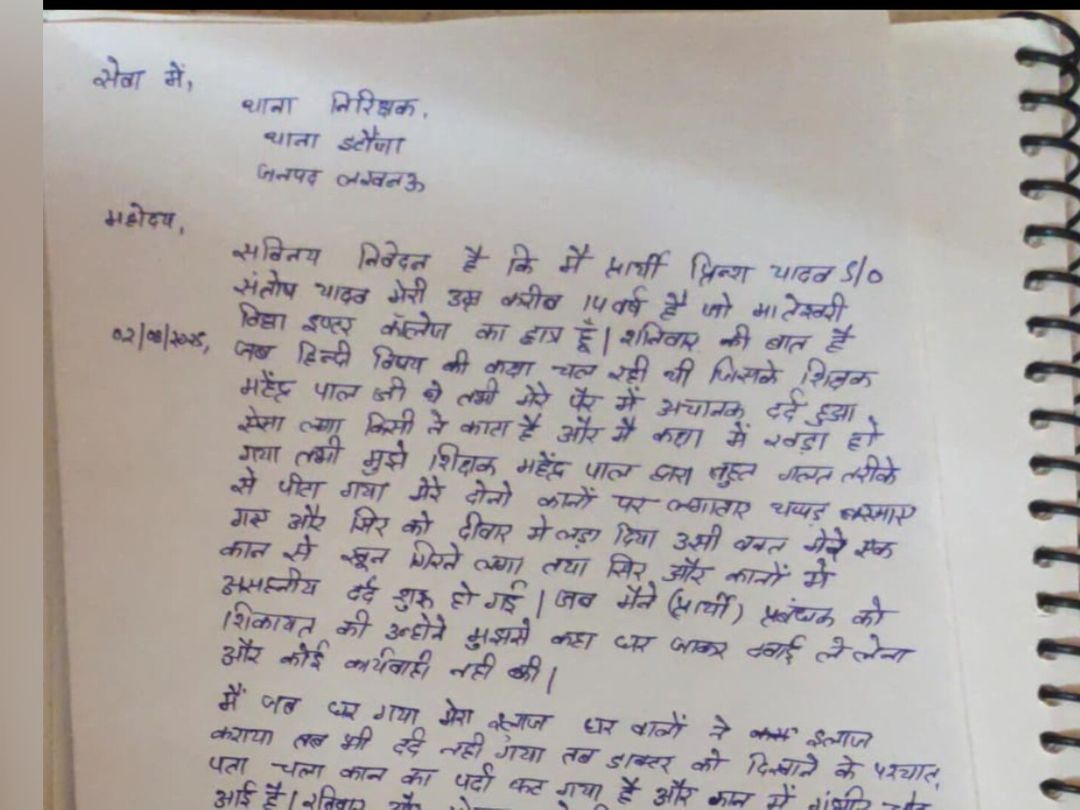 सेवा में,
थाना निरिक्षक,
थाना इटौंजा
जनपद लखनऊ
महोदय,
सविनय निवेदन है कि मैं प्रार्थी प्रिन्श यादव S/O
संतोष यादव मेरी उम्र करीब 14 वर्ष है जो मातेश्वरी
विद्या इण्टर कॉलेज का छात्र हूँ| शनिवार की बात है
02/08/2025, जब हिन्दी विषय की कक्षा चल रही थी जिसके शिक्षक
महेंद्र पाल जी थे तभी मेरे पैर में अचानक दर्द हुआ
ऐसा लगा किसी ने काटा है और मै कक्षा में खड़ा हो
गया तभी मुझे शिक्षक महेंद्र पाल द्वारा बहुत गलत तरीके
से पीटा गया मेरे दोनो कानों पर लगातार थप्पड़ बरसाए
गए और सिर को दीवार मे लड़ा दिया उसी वक्त मेरे एक
कान से खून गिरने लगा तथा सिर और कानों मे
असहनीय दर्द शुरू हो गई| जब मैने (प्रार्थी) प्रबंधक को
शिकायत की उन्होने मुझसे कहा घर जाकर दवाई ले लेना
और कोई कार्यवाही नही की|
मैं जब घर गया मेरा इलाज घर वालों ने इलाज
कराया तब भी दर्द नही गया तब डाक्टर को दिखाने के पश्चात्
पता चला कान का पर्दा फट गया है और कान में गंभीर चोट
आई है| रविवार और